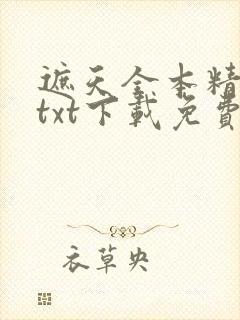 遮天全本精
txt下載免費
衣草央